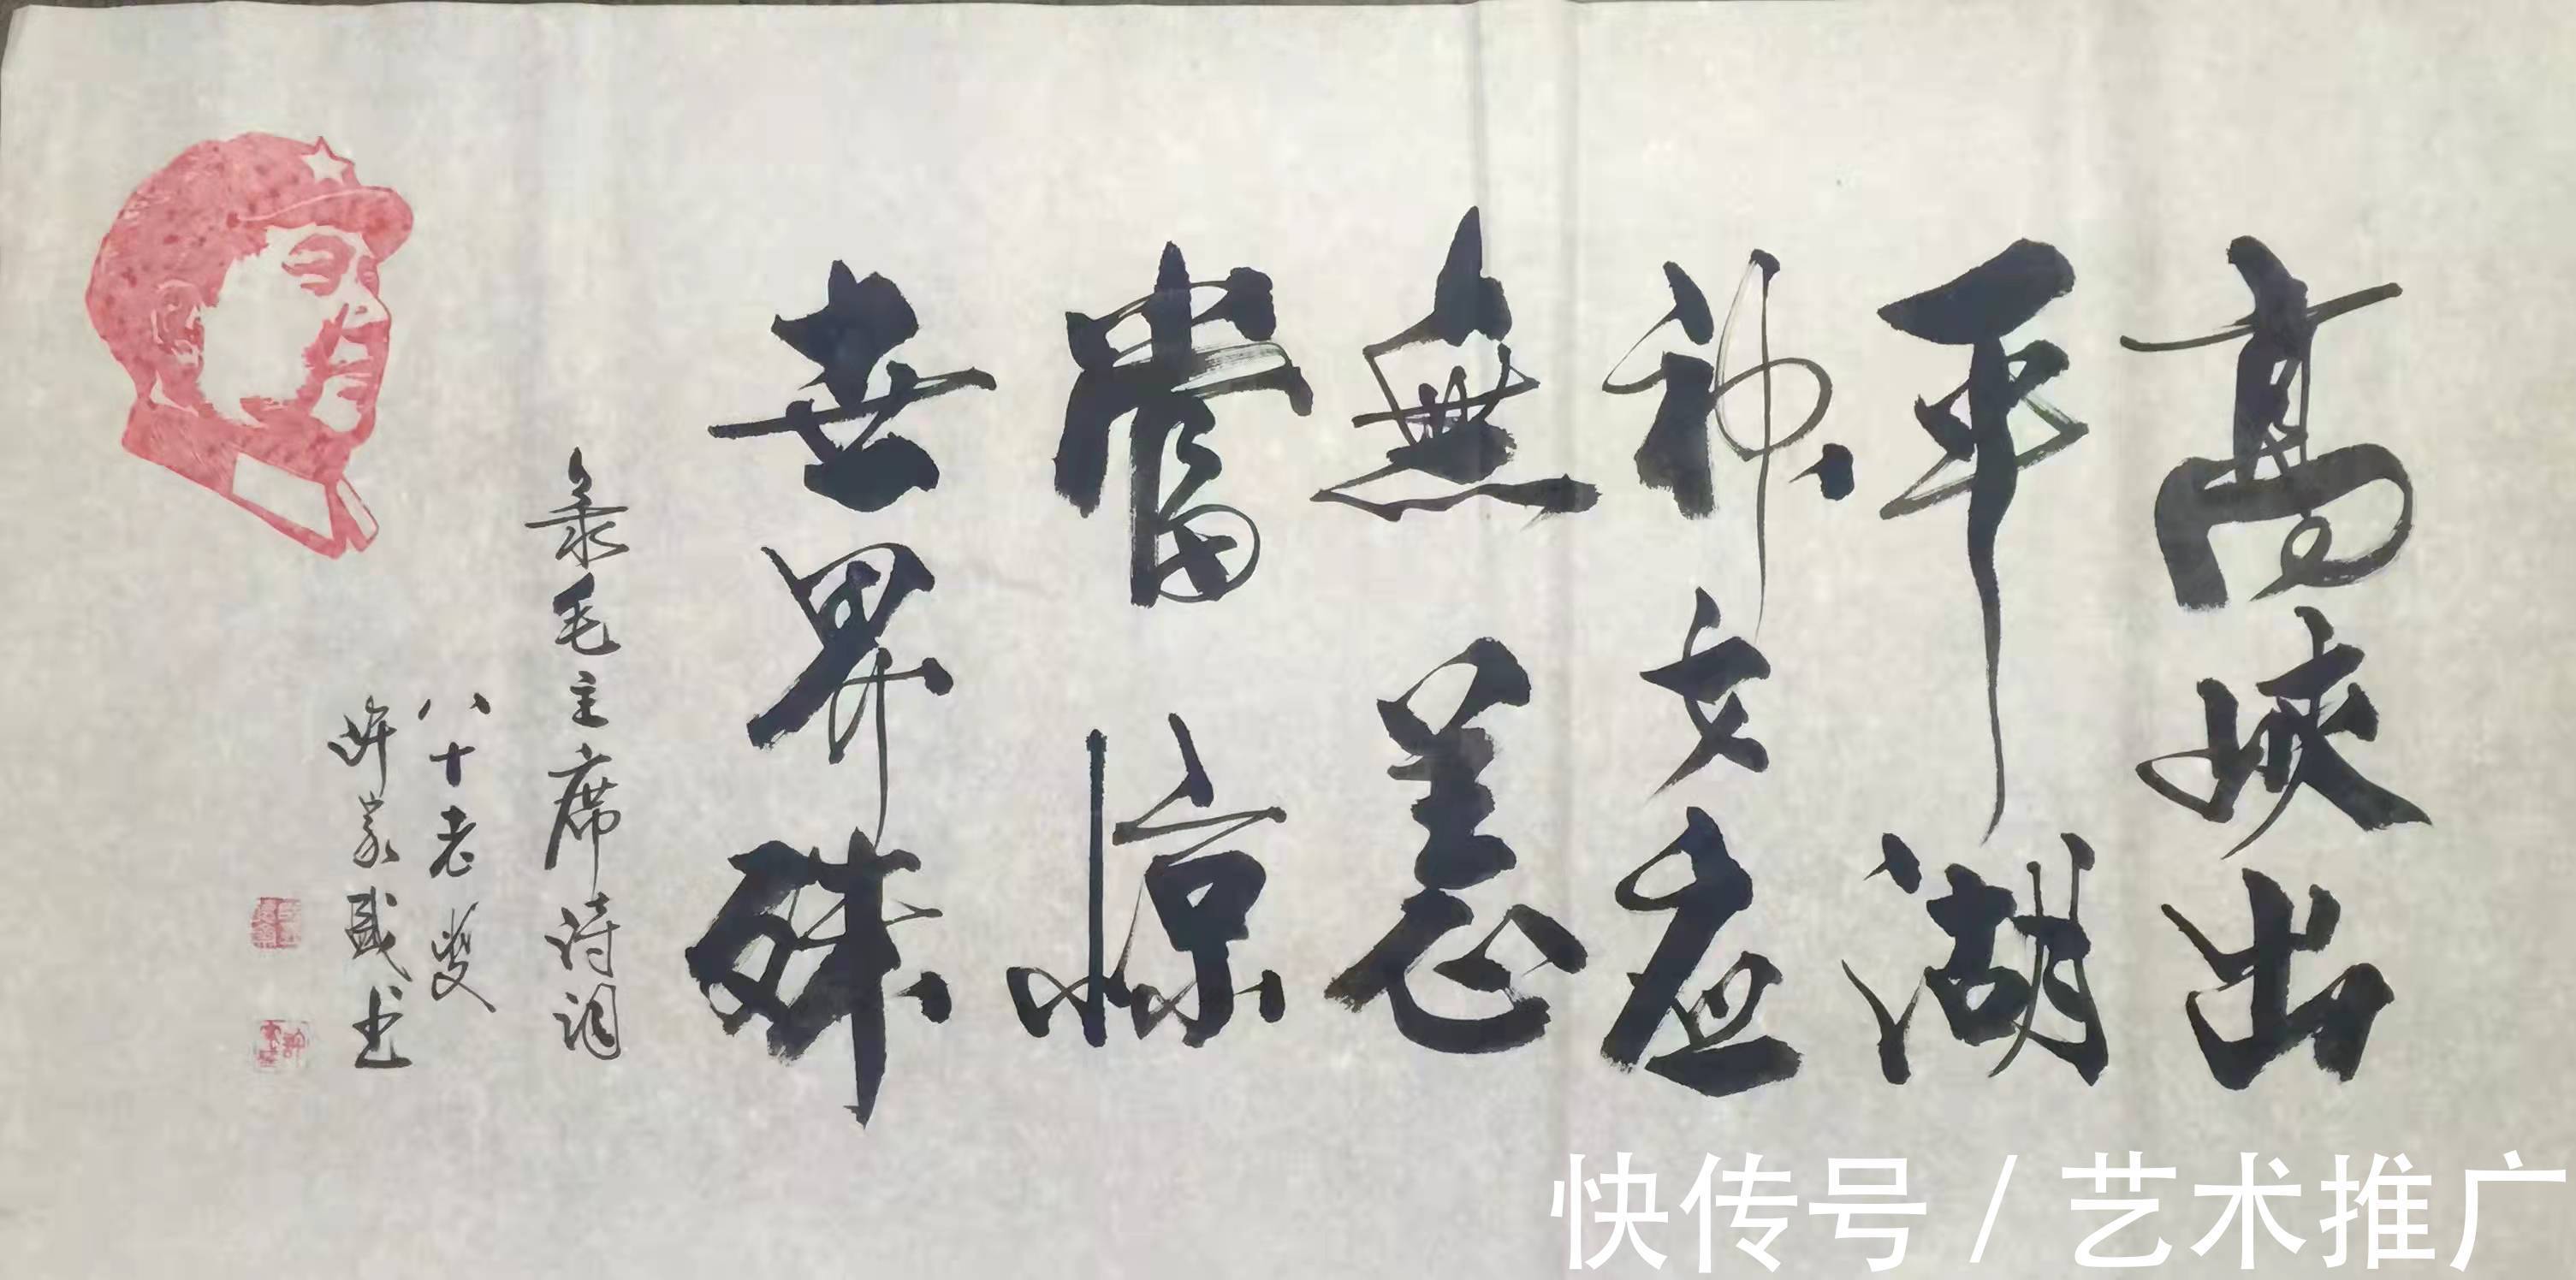 高峡出
平湖
神女應
無恙
當惊
世界殊
录毛主席诗词
八十老叟
许家盛书
快传号/艺术推广